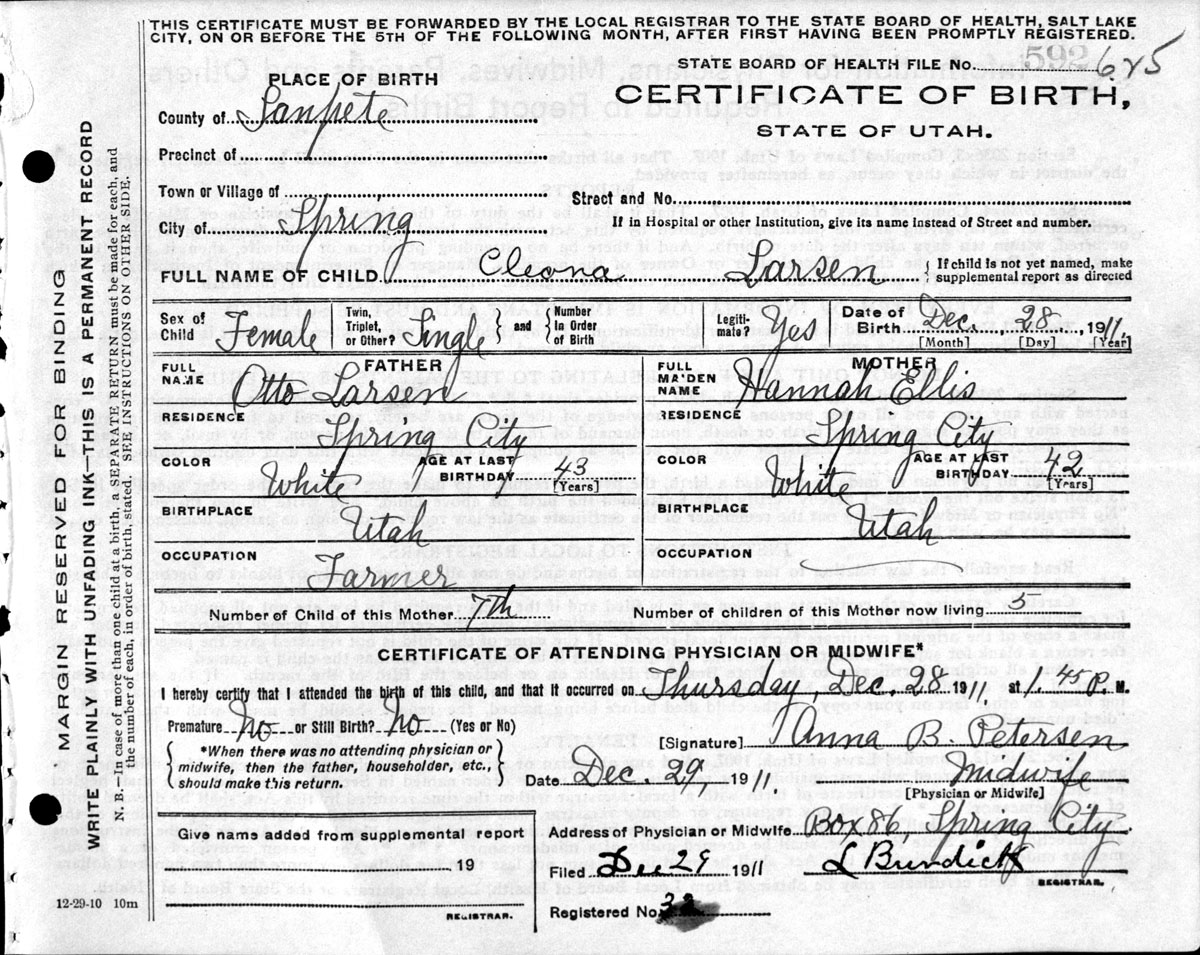 THIS CERTIFICATE MUST BE FORWARDED BY THE LOCAL REGISTRAR TO THE STATE BOARD OF HEALTH, SALT LAKE
CITY, ON OR BEFORE THE 5TH OF THE FOLLOWING MONTH, AFTER FIRST HAVING BEEN PROMPTLY REGISTERED.
STATE BOARD OF HEALTH FILE No. 592 625
PLACE OF BIRTH
CERTIFICATE OF BIRTH,
County of Sanpete
STATE OF UTAH.
Precinct of
Town or Village of
Street and No.
City of Spring
If in Hospital or other Institution, give its name instead of Street and number.
FULL NAME OF CHILD Cleona Larsen { If child is not yet named, make
supplemental report as directed
Sex of Child Female Twin, Triplet, or Other? Single } and { Number In Order of Birth Legiti-mate? Yes Date of Birth Dec. 28 1911
[Month] [Day] [Year]
FATHER
FULL NAME Otto Larsen
MOTHER
FULL MAIDEN NAME Hannah Ellis
RESIDENCE Spring City
RESIDENCE Spring City
COLOR White AGE AT LAST BIRTHDAY 43 [Years]
COLOR White AGE AT LAST BIRTHDAY 42 [Years]
BIRTHPLACE Utah
BIRTHPLACE Utah
OCCUPATION Farmer
OCCUPATION
Number of Child of this Mother 7th
Number of children of this Mother now living 5
CERTIFICATE OF ATTENDING PHYSICIAN OR MIDWIFE*
I hereby certify that I attended the birth of this child, and that it occurred on Thursday, Dec. 28 1911 at 1.45 P. M.
Premature No or Still Birth? No (Yes or No)
{ *When there was no attending physician or
midwife, then the father, householder, etc.,
should make this return. }
[Signature] Anna B. Petersen
Date Dec 29 1911. Midwife
[Physician or Midwife]
Give name added from supplemental report
19
REGISTRAR.
Address of Physician or Midwife Box 86, Spring City
Filed Dec 29 1911 L Burdick
REGISTRAR.
Registered No. 32
12-29-10 10m
MARGIN RESERVED FOR BINDING
WRITE PLAINLY WITH UNFADING INK—THIS IS A PERMANENT RECORD
N. B.—In case of more than one child at a birth, a SEPARATE RETURN must be made for each, and
the number of each, in order of birth, stated. SEE INSTRUCTIONS ON OTHER SIDE.